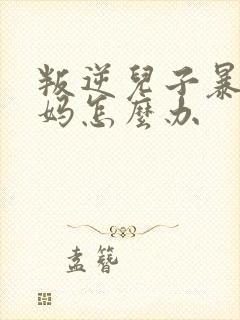 叛逆兒子暴
妈怎麼办
孟簪